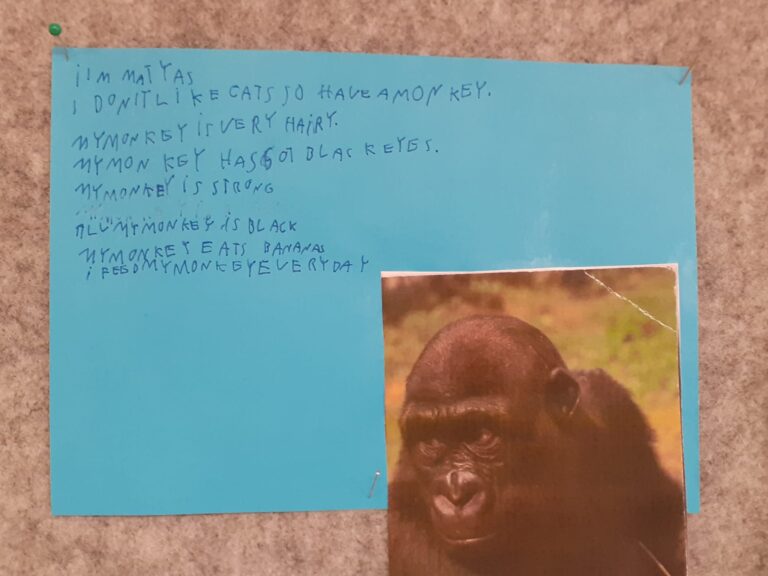 I'M MATYAS
I DON'T LIKE CATS SO HAVE A MONKEY.
MY MONKEY IS VERY HAIRY.
MY MONKEY HAS GOT BLAC KEYES.
MY MONKEY IS STRONG
ALL MY MONKEY IS BLACK
MY MONKEY EATS BANANAS
I FEED MY MONKEY EVERY DAY